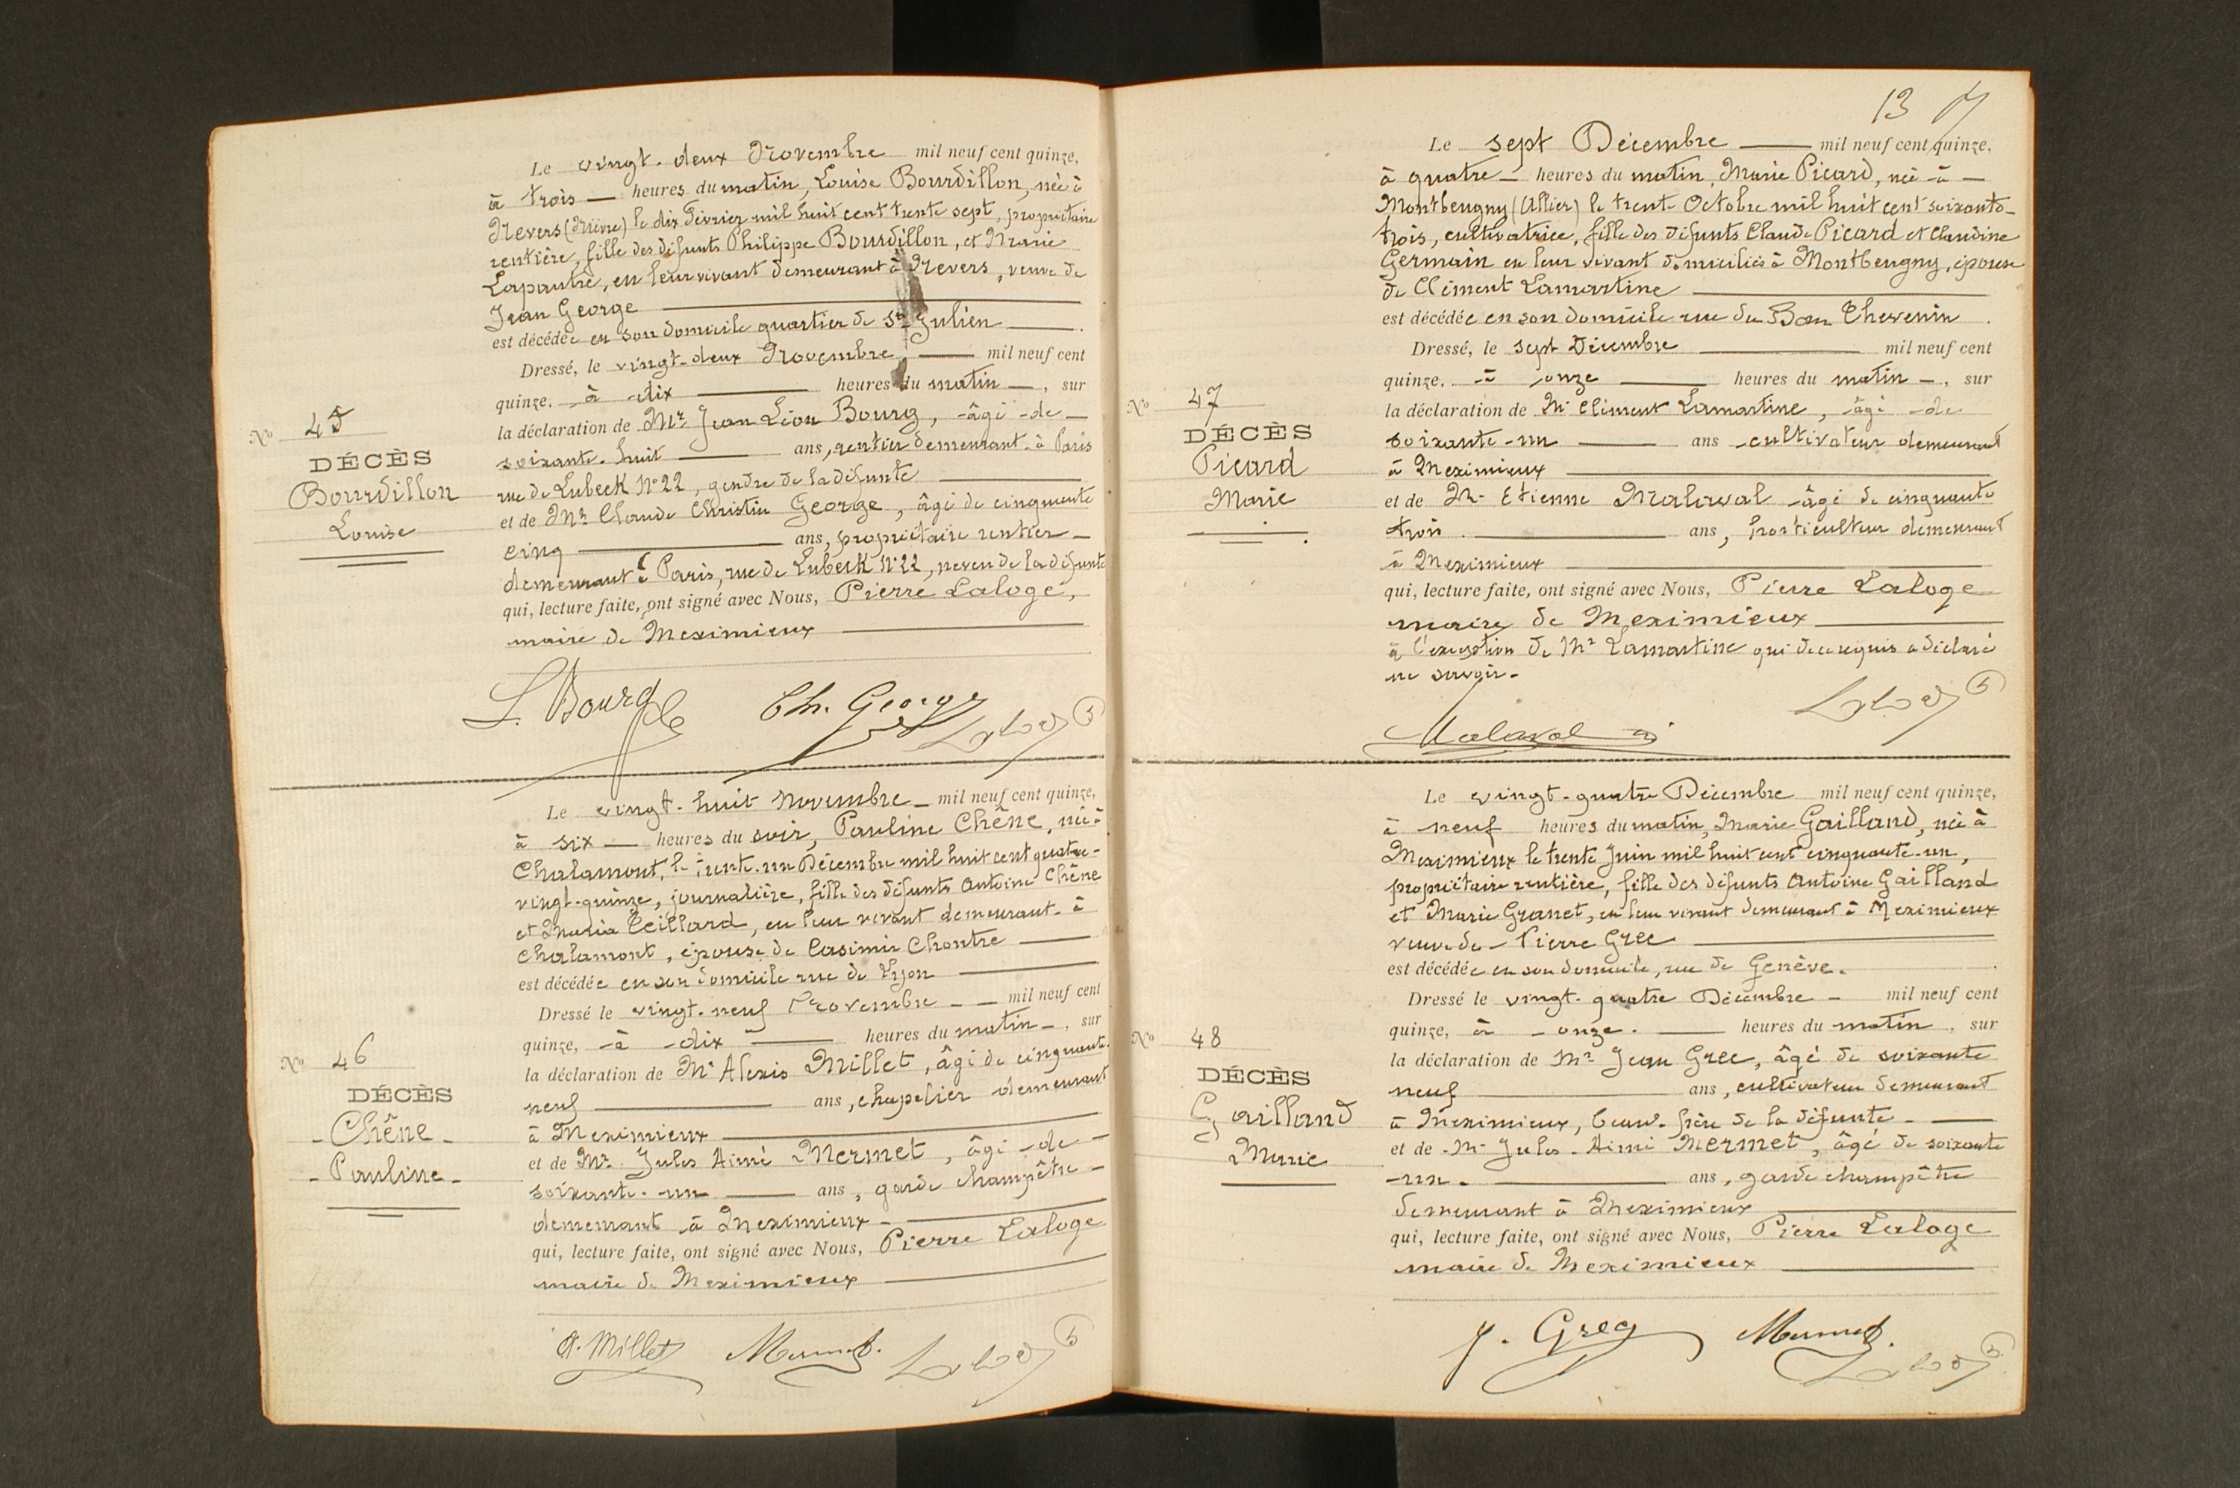 Le vingt-deux Novembre mil neuf cent quinze,
à trois heures du matin, Louise Bourdillon, née à
Nevers (Nièvre) le dix Février mil huit cent trente sept, propriétaire
rentière, fille des défunts Philippe Bourdillon, et Marie
Lapautre, en leur vivant demeurant à Nevers, veuve de
Jean George
est décédée en son domicile quartier de St Julien.
Dressé, le vingt-deux Novembre, mil neuf cent
quinze, à dix heures du matin, sur
la déclaration de Mr Jean Léon Bourg, âgé de
soixante-huit ans, rentier demeurant à Paris
rue de Lubeck N° 22, gendre de la défunte
et de Mr Claude Christin George, âgé de cinquante
cinq ans, propriétaire rentier
demeurant à Paris, rue de Lubeck N° 22, neveu de la défunte
qui, lecture faite, ont signé avec Nous, Pierre Laloge,
maire de Meximieux
No 45
DÉCÈS
Bourdillon
Louise
L. Bourg Ch. George Laloge
Le vingt-huit Novembre mil neuf cent quinze,
à six heures du soir, Pauline Chêne, née à
Chalamont, le trente-un Décembre mil huit cent quatre-
vingt-quinze, journalière, fille des défunts Antoine Chêne
et Maria Teillard, en leur vivant demeurant à
Chalamont, épouse de Casimir Chontre
est décédée en son domicile rue de Lyon
Dressé le vingt-neuf Novembre mil neuf cent
quinze, à dix heures du matin, sur
la déclaration de Mr Alexis Millet, âgé de cinquante-
neuf ans, chapelier demeurant
à Meximieux
et de Mr Jules Aimé Mermet, âgé de
soixante-un ans, garde champêtre
demeurant à Meximieux
qui, lecture faite, ont signé avec Nous, Pierre Laloge
maire de Meximieux
No 46
DÉCÈS
Chêne
Pauline
A. Millet Mermet. Laloge
13
Le sept Décembre mil neuf cent quinze,
à quatre heures du matin, Marie Picard, née à
Montbeugny (Allier) le trente Octobre mil huit cent soixante-
trois, cultivatrice, fille des défunts Claude Picard et Claudine
Germain en leur vivant domiciliés à Montbeugny, épouse
de Clément Lamartine
est décédée en son domicile rue du Bon Thevenin.
Dressé, le sept Décembre mil neuf cent
quinze, à onze heures du matin, sur
la déclaration de Mr Clément Lamartine, âgé de
soixante-un ans cultivateur demeurant
à Meximieux
et de Mr Etienne Malaval âgé de cinquante
trois ans, horticulteur demeurant
à Meximieux
qui, lecture faite, ont signé avec Nous, Pierre Laloge
maire de Meximieux
à l'exception de Mr Lamartine qui de ce requis a déclaré
ne savoir.
No 47
DÉCÈS
Picard
Marie
Malaval Laloge
Le vingt-quatre Décembre mil neuf cent quinze,
à neuf heures du matin, Marie Gailland, née à
Meximieux le trente Juin mil huit cent cinquante-un,
propriétaire rentière, fille des défunts Antoine Gailland
et Marie Granet, en leur vivant demeurant à Meximieux
veuve de Pierre Grec
est décédée en son domicile, rue de Genève.
Dressé le vingt-quatre Décembre mil neuf cent
quinze, à onze. heures du matin, sur
la déclaration de Mr Jean Grec, âgé de soixante
neuf ans, cultivateur demeurant
à Meximieux, beau-frère de la défunte
et de Mr Jules Aimé Mermet, âgé de soixante
un. ans, garde champêtre
demeurant à Meximieux
qui, lecture faite, ont signé avec Nous, Pierre Laloge
maire de Meximieux
No 48
DÉCÈS
Gailland
Marie
J. Grec Mermet. Laloge